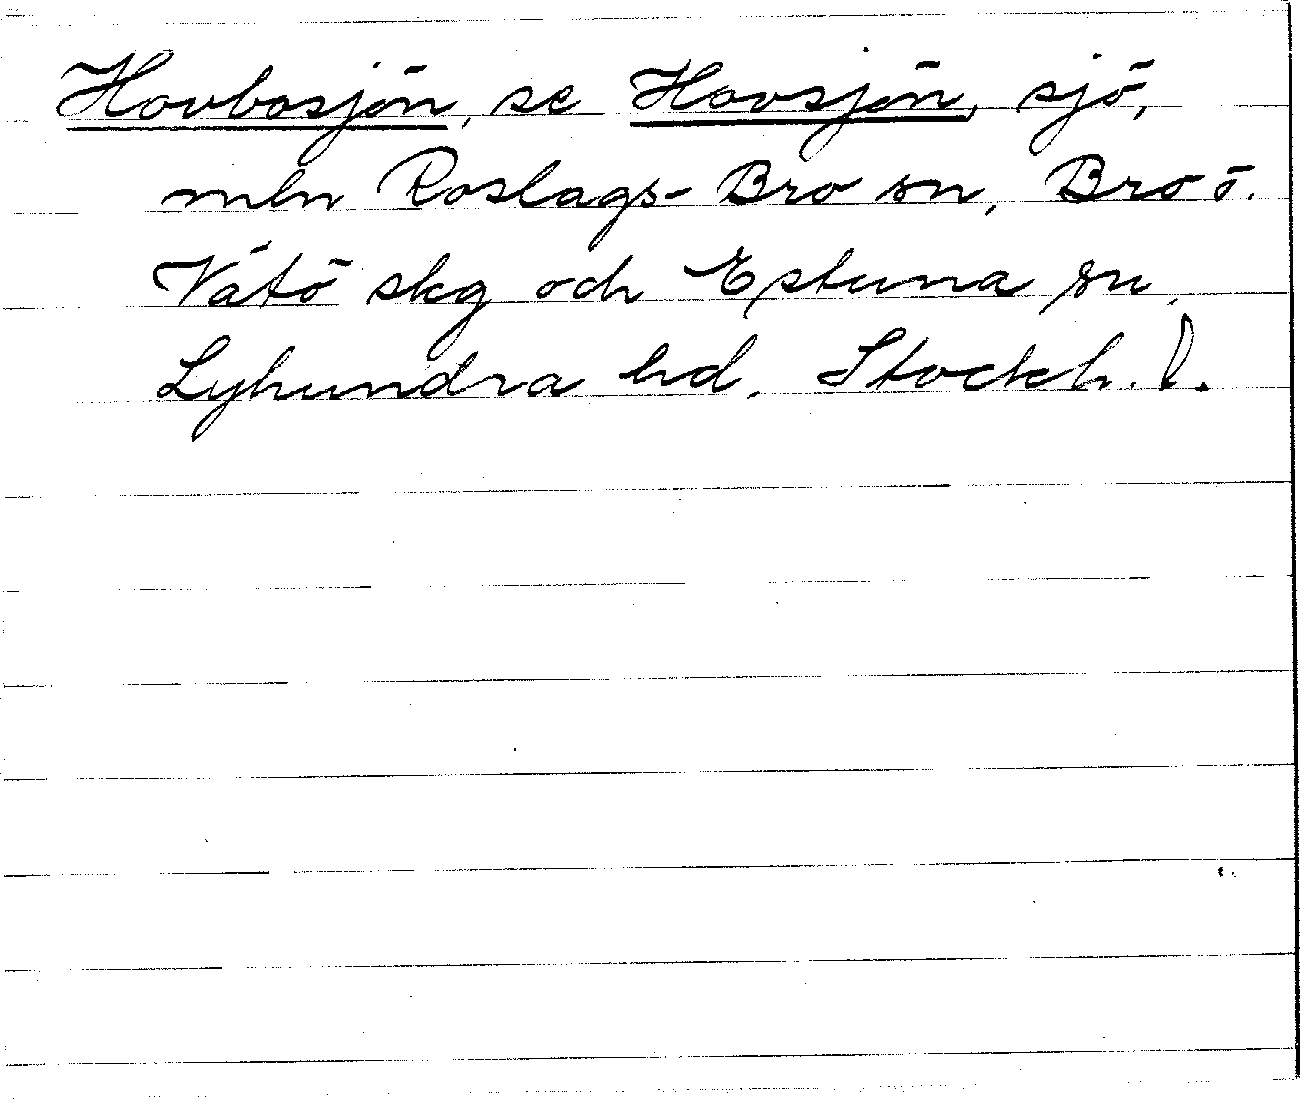 Hovbosjön, se Hovsjön, sjö,
mln Roslags-Bro sn, Bro o.
Vätö skg och Estuna sn,
Lyhundra hd, Stockh. l.